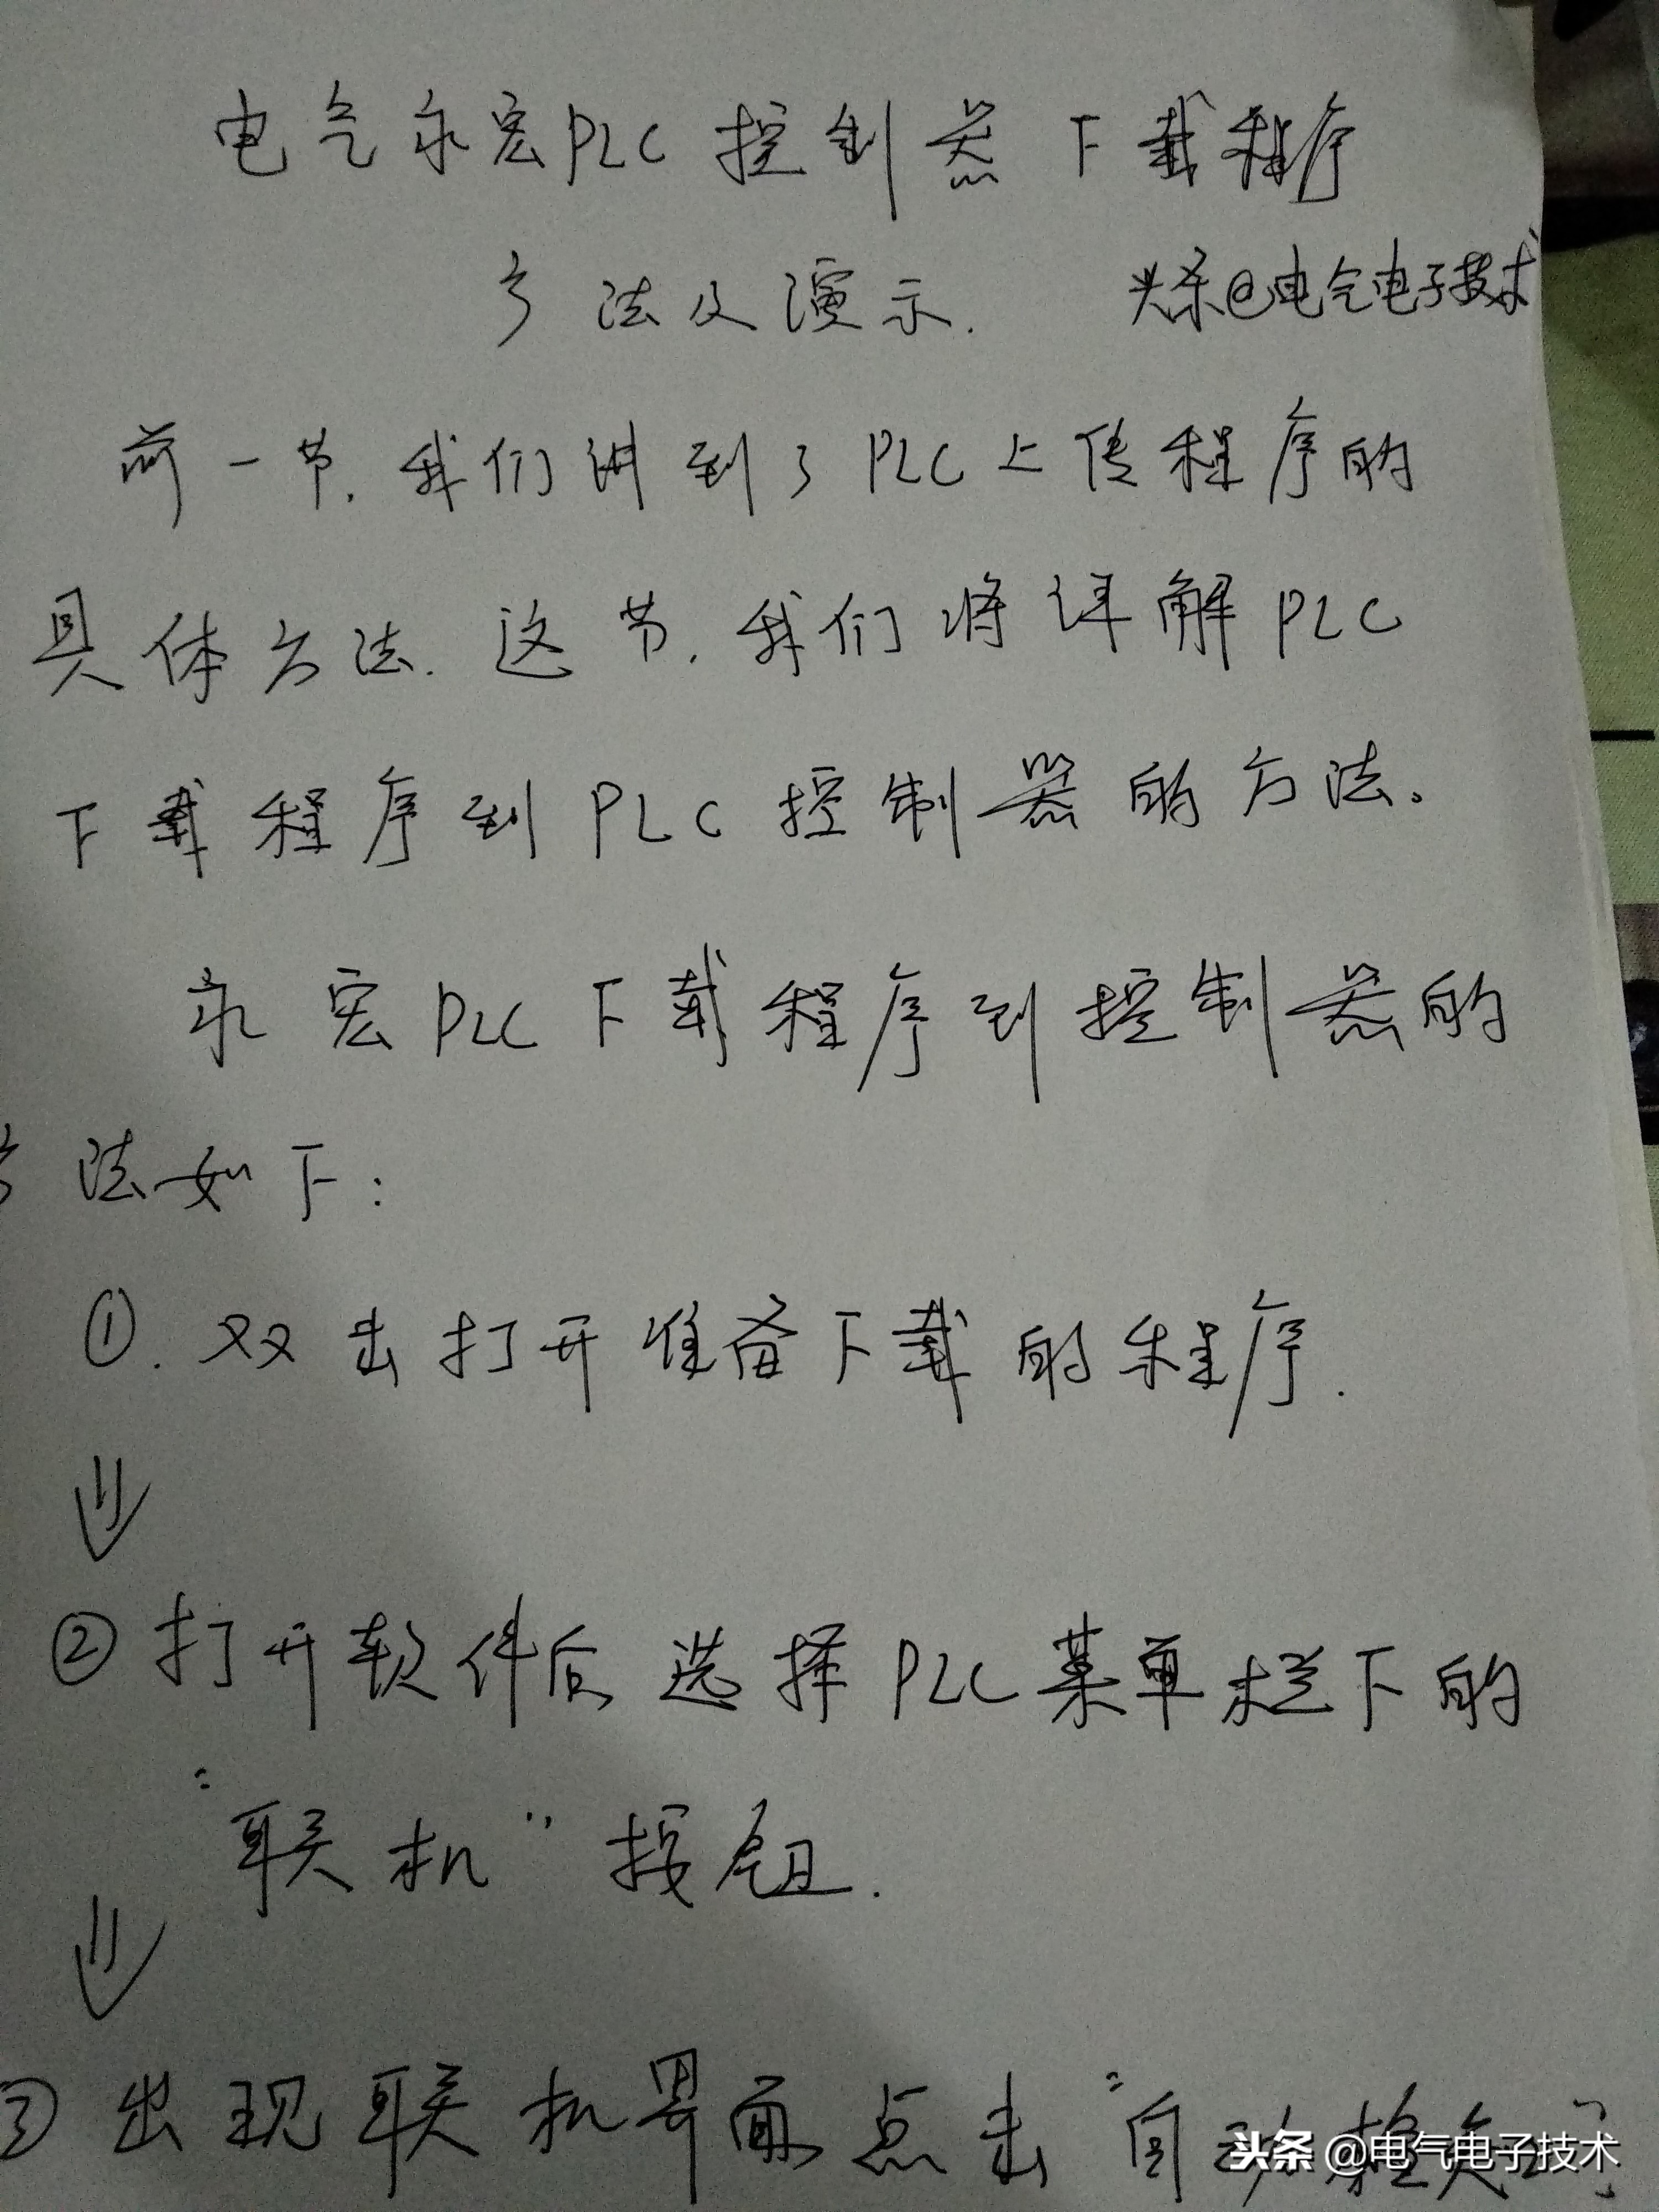 电气永宏PLC控制器下载程序
方法及演示.
头条@电气电子技术
前一节,我们讲到了PLC上传程序的
具体方法.这节,我们将详解PLC
下载程序到PLC控制器的方法。
永宏PLC下载程序到控制器的
方法如下:
①.双击打开准备下载的程序.
②打开软件后选择PLC菜单栏下的
"联机"按钮.
③出现联机界面点击"自动检
头条@电气电子技术